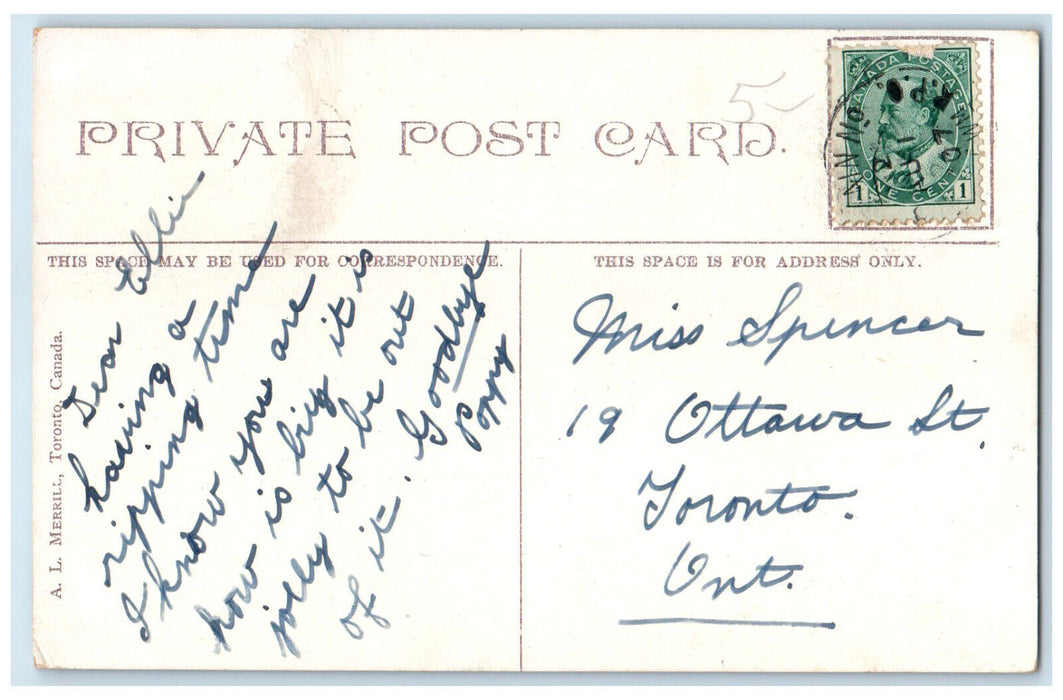 PRIVATE POST CARD.
5-
CANADA POSTAGE
ONE CENT
1 1
THIS SPACE MAY BE USED FOR CORRESPONDENCE.
THIS SPACE IS FOR ADDRESS ONLY.
A. L. MERRILL, Toronto, Canada.
Dear Ellie
having a
ripping time
I know you are
how is biz it is
jolly to be out
of it. Goodbye
Poppy
Miss Spencer
19 Ottawa St.
Toronto.
Ont.